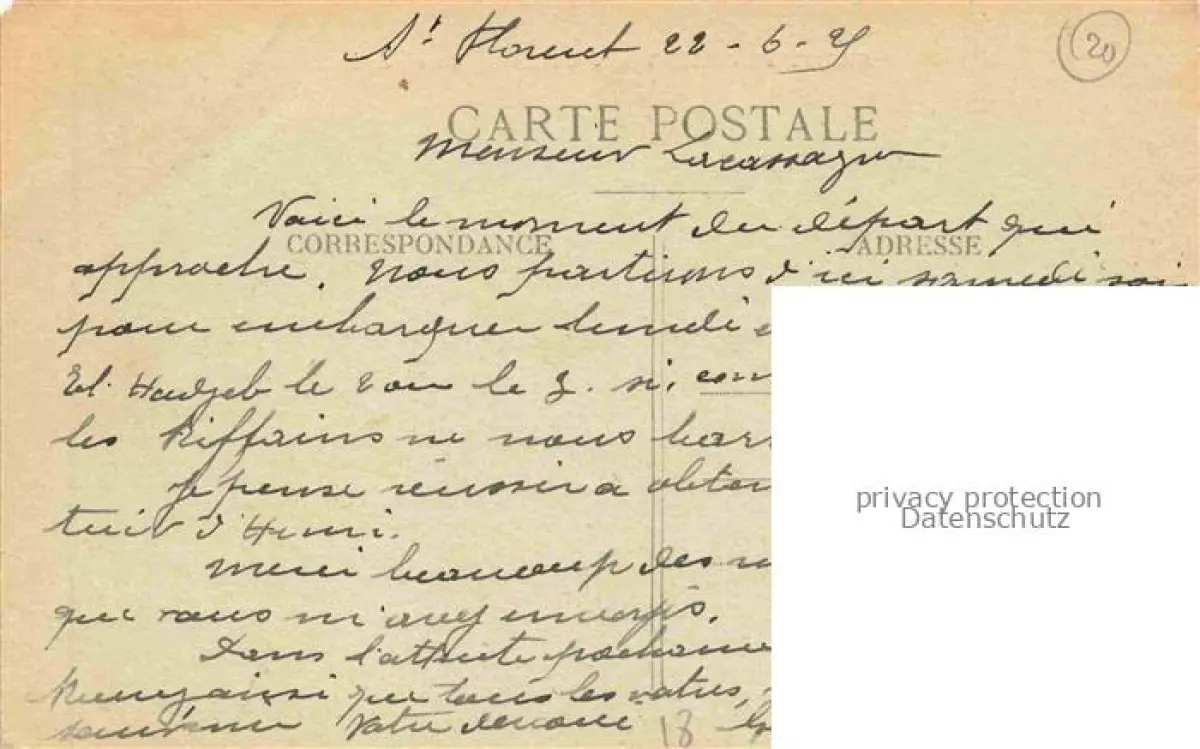 St Florent 22-6-25
20
CARTE POSTALE
Monsieur Lacassagne
Voici le moment du départ qui
CORRESPONDANCE ADRESSE
approche. Nous partirons d'ici samedi soi
pour embarquer lundi
El Hadjeb le 2 ou le 3. si, com
les Riffains ne nous barr
Je pense réussir a obten
tuir d'Henri.
Merci beaucoup des
que vous m'avez envoyés.
Dans l'attente
ainsi que tous les votres,
Votre dévoué 18
privacy protection
Datenschutz